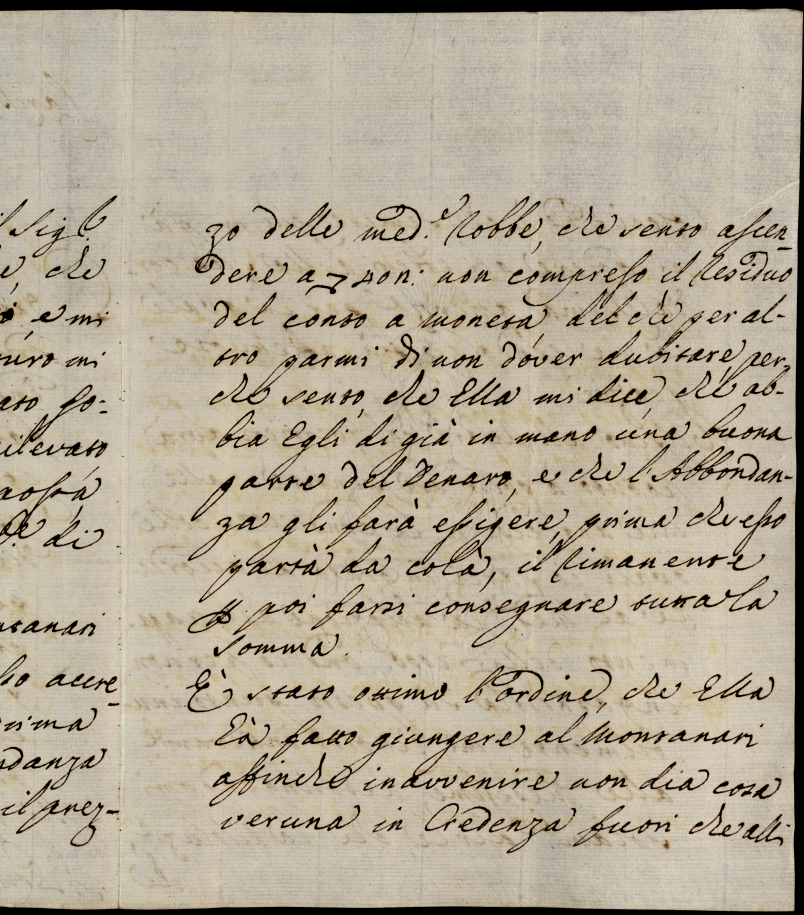 l Sig.r
e, che
ò, e mi
turo mi
ato go-
rilevato
di
ntanari
so accre-
rima
ndanza
il prez-
zo delle med.e Robbe, che sento ascen-
dere a non compreso il Residuo
del conto a moneta del che per al-
tro parmi di non dover dubitare, per-
che sento, che Ella mi dice, che ab-
bia Egli di già in mano una buona
parte del Denaro, e che l'Abbondan-
za gli farà essigere, prima che esso
partà da colà, il Rimanente
p poi farsi consegnare tutta la
somma.
È stato ottimo l'ordine, che Ella
hà fatto giungere al Montanari
affinche in avvenire non dia cosa
veruna in Credenza fuori che alli